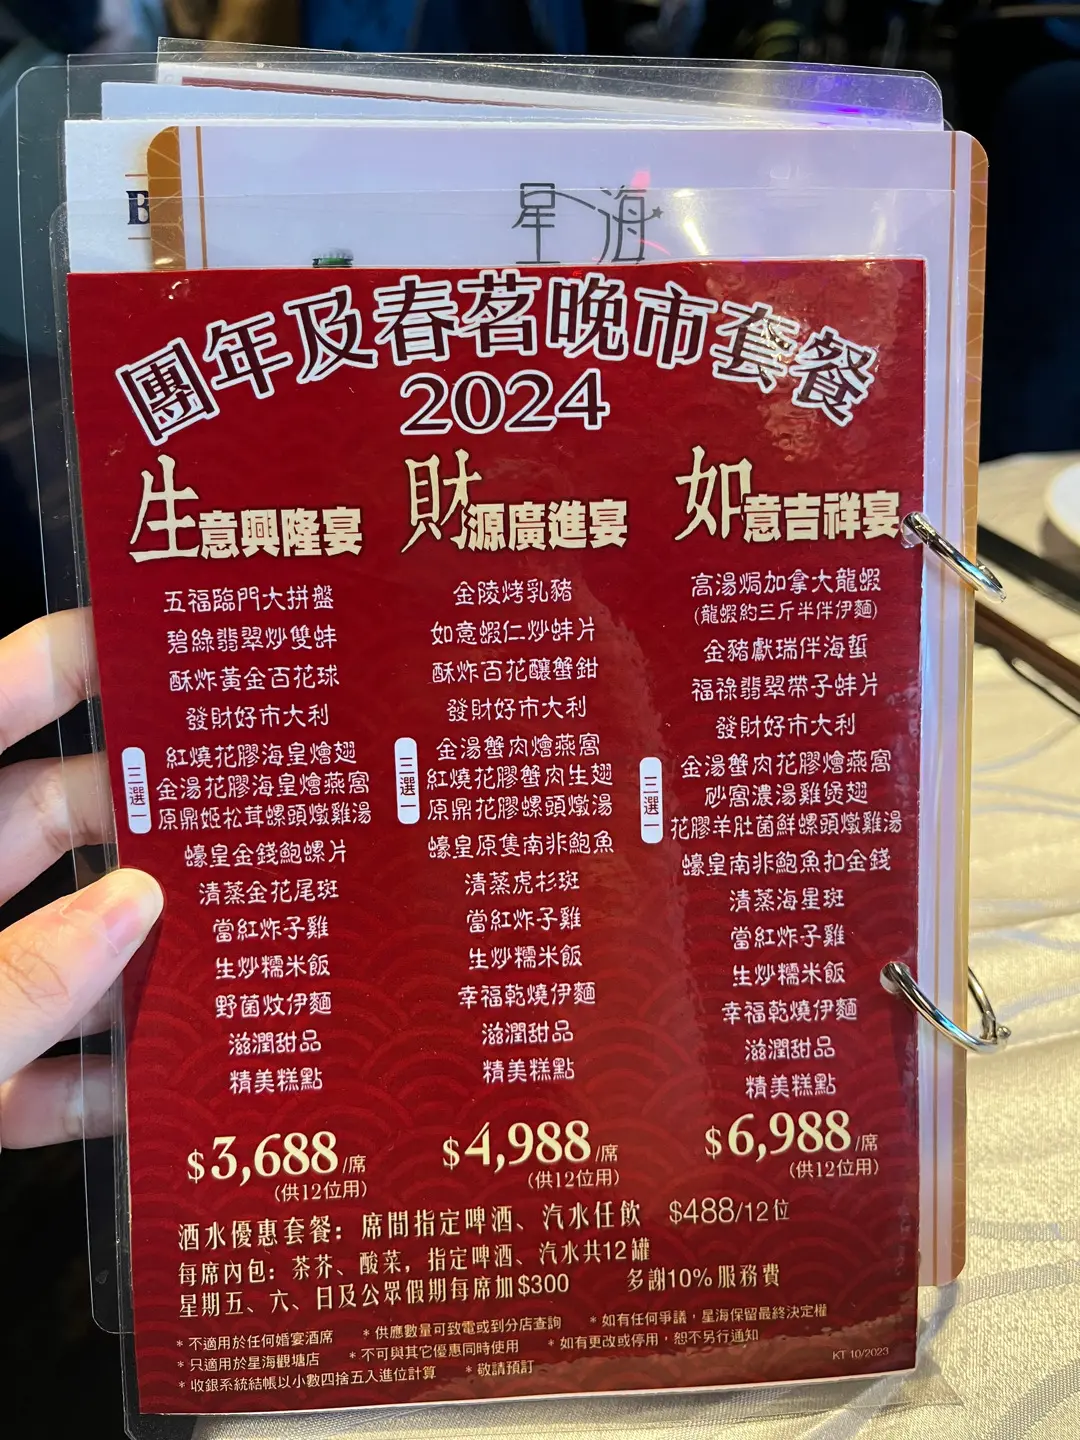 B
星海
團年及春茗晚市套餐
2024
生意興隆宴
五福臨門大拼盤
碧綠翡翠炒雙蚌
酥炸黃金百花球
發財好市大利
三選一
紅燒花膠海皇燴翅
金湯花膠海皇燴燕窩
原鼎姬松茸螺頭燉雞湯
蠔皇金錢鮑螺片
清蒸金花尾斑
當紅炸子雞
生炒糯米飯
野菌炆伊麵
滋潤甜品
精美糕點
$3,688/席
(供12位用)
財源廣進宴
金陵烤乳豬
如意蝦仁炒蚌片
酥炸百花釀蟹鉗
發財好市大利
三選一
金湯蟹肉燴燕窩
紅燒花膠蟹肉生翅
原鼎花膠螺頭燉湯
蠔皇原隻南非鮑魚
清蒸虎杉斑
當紅炸子雞
生炒糯米飯
幸福乾燒伊麵
滋潤甜品
精美糕點
$4,988/席
(供12位用)
如意吉祥宴
高湯焗加拿大龍蝦
(龍蝦約三斤半伴伊麵)
金豬獻瑞伴海蜇
福祿翡翠帶子蚌片
發財好市大利
三選一
金湯蟹肉花膠燴燕窩
砂窩濃湯雞煲翅
花膠羊肚菌鮮螺頭燉雞湯
蠔皇南非鮑魚扣金錢
清蒸海星斑
當紅炸子雞
生炒糯米飯
幸福乾燒伊麵
滋潤甜品
精美糕點
$6,988/席
(供12位用)
酒水優惠套餐：席間指定啤酒、汽水任飲 $488/12位
每席內包：茶芥、酸菜，指定啤酒、汽水共12罐
星期五、六、日及公眾假期每席加$300 多謝10%服務費
*不適用於任何婚宴酒席 *供應數量可致電或到分店查詢 *如有任何爭議，星海保留最終決定權
*只適用於星海觀塘店 *不可與其它優惠同時使用 *如有更改或停用，恕不另行通知
*收銀系統結帳以小數四捨五入進位計算 *敬請預訂
KT 10/2023